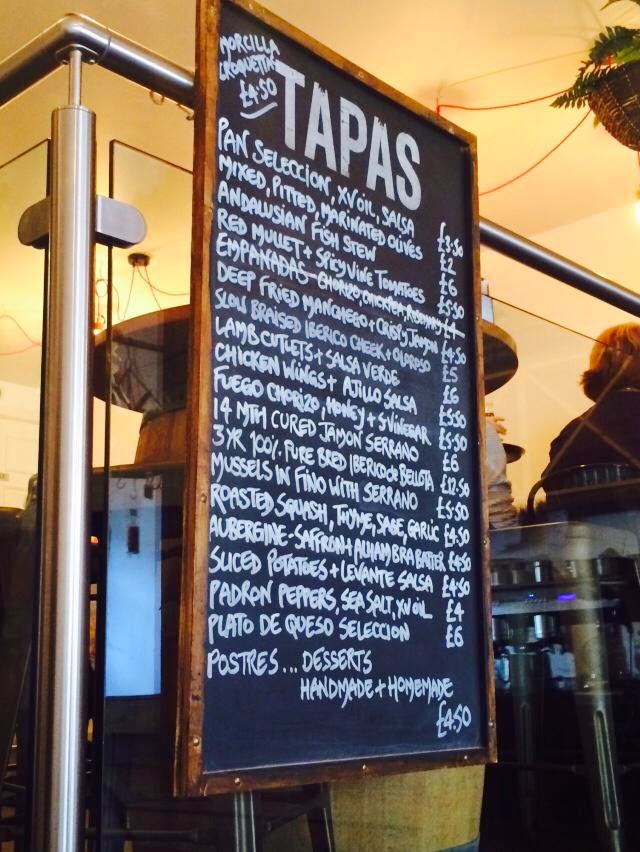 MORCILLA
CROQUETTAS
£4.50
TAPAS
PAN SELECCION, XV OIL, SALSA £3.50
MIXED, PITTED, MARINATED OLIVES £2
ANDALUSIAN FISH STEW £6
RED MULLET + SPICY VINE TOMATOES £5.50
EMPANADAS - CHORIZO, CHICKPEA, ROSEMARY £4
DEEP FRIED MANCHEGO + CRISPY JAMON £4.50
SLOW BRAISED IBERICO CHEEK + OLOROSO £5
LAMB CUTLETS + SALSA VERDE £6
CHICKEN WINGS + AJILLO SALSA £5.50
FUEGO CHORIZO, HONEY + S VINEGAR £5.50
14 MTH CURED JAMON SERRANO £6
3 YR 100% PURE BRED IBERICO de BELLOTA £12.50
MUSSELS IN FINO WITH SERRANO £5.50
ROASTED SQUASH, THYME, SAGE, GARLIC £4.50
AUBERGINE - SAFFRON + ALHAMBRA BATTER £4.50
SLICED POTATOES + LEVANTE SALSA £4.50
PADRON PEPPERS, SEA SALT, XV OIL £4
PLATO DE QUESO SELECCION £6
POSTRES... DESSERTS
HANDMADE + HOMEMADE
£4.50